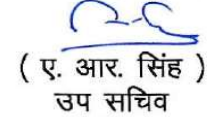 ( ए. आर. सिंह )
उप सचिव